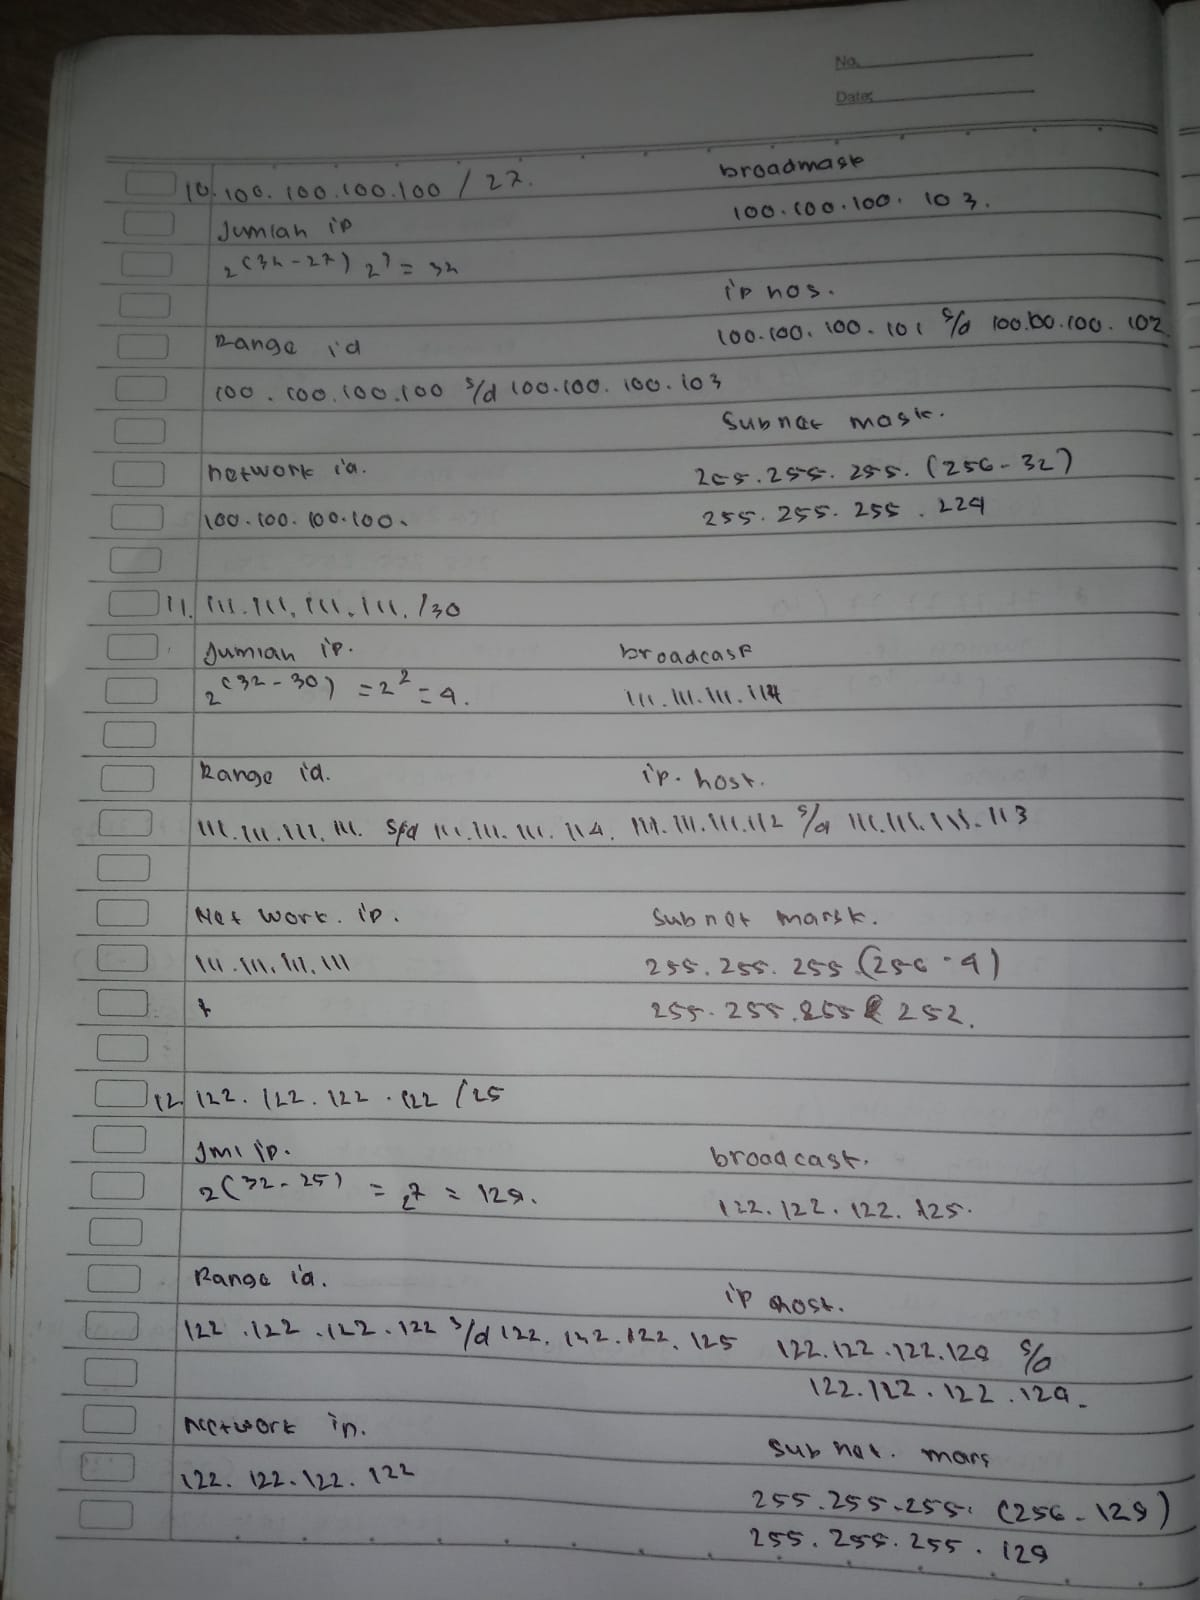 No.
Date:
10. 100.100.100.100 / 27.
Jumlah ip
2(32-27) 2? = 32
Range id
100.100.100.100 s/d 100.100.100.103
network id.
100.100.100.100.
broadmask
100.100.100.103.
ip hos.
100.100.100.101 s/d 100.100.100.102
Subnet mask.
255.255.255.(256-32)
255.255.255.224
11. 111.111.111.111./30
Jumlah ip.
2(32-30) = 2² = 4.
Range id.
111.111.111.111. s/d 111.111.111.114.
Net work. ip.
111.111.111.111
broadcast
111.111.111.114
ip. host.
111.111.111.112 s/d 111.111.111.113
Subnet marsk.
255.255.255.(256-4)
255.255.255 252.
12. 122.122.122.122 /25
Jml ip.
2(32-25) = 2⁷ = 128.
Range id.
122.122.122.122 s/d 122.122.122.125
Network ip.
122.122.122.122
broadcast.
122.122.122.125.
ip host.
122.122.122.128 s/d
122.122.122.129.
Sub net. mars
255.255.255.(256-128)
255.255.255.128